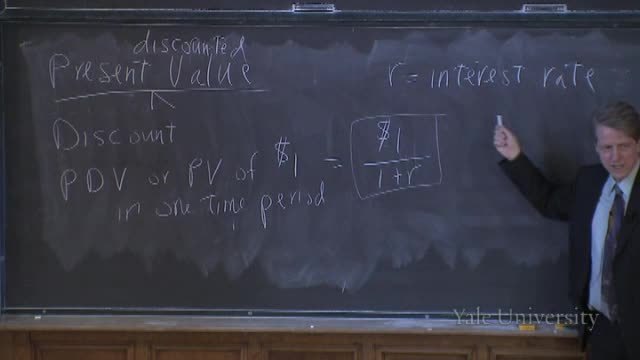 discounted
Present Value
r = interest rate
Discount
PDV or PV of $1 = $1 / 1+r
in one time period
Yale University